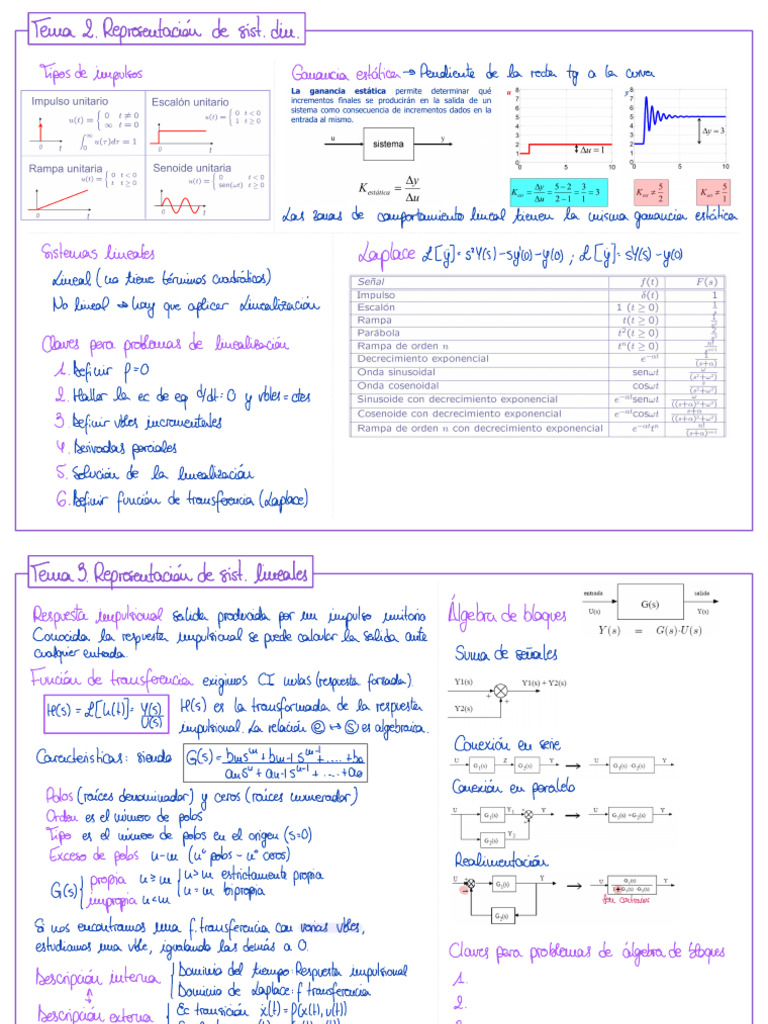 Tema 2. Representación de sist. din.
Tipos de impulsos
Impulso unitario
u(t) = { 0 t ≠ 0
∞ t = 0
∫₀^∞ u(τ)dτ = 1
0 t
Escalón unitario
u(t) = { 0 t < 0
1 t ≥ 0
0 t
Rampa unitaria
u(t) = { 0 t < 0
t t ≥ 0
0 t
Senoide unitaria
u(t) = { 0 t < 0
sen(ωt) t ≥ 0
0 t
Ganancia estática → Pendiente de la recta tg a la curva
La ganancia estática permite determinar qué
incrementos finales se producirán en la salida de un
sistema como consecuencia de incrementos dados en la
entrada al mismo.
u sistema y
K estática = Δy / Δu
u 8 7 6 5 4 3 2 1 0
Δu = 1
0 5 10
y 8 7 6 5 4 3 2 1 0
Δy = 3
0 5 10
K est = Δy/Δu = 5−2/2−1 = 3/1 = 3
K est ≠ 5/2
K est ≠ 5/1
Las zonas de comportamiento lineal tienen la misma ganancia estática
Sistemas lineales
Lineal (no tiene términos cuadráticos)
No lineal → hay que aplicar Linealización
Claves para problemas de linealización
1. Definir f=0
2. Hallar la ec de eq d/dt=0 y vbles=ctes
3 Definir vbles incrementales
4. Derivadas parciales
5. Solución de la linealización
6. Definir función de transferencia (Laplace)
Laplace ℒ[ÿ]=s²Y(s)−sy(0)−ẏ(0) ; ℒ[ẏ]=sY(s)−y(0)
Señal f(t) F(s)
Impulso δ(t) 1
Escalón 1 (t ≥ 0)
Rampa t(t ≥ 0)
Parábola t²(t ≥ 0)
Rampa de orden n tⁿ(t ≥ 0)
Decrecimiento exponencial e^−αt 1/(s+α)
Onda sinusoidal senωt ω/(s²+ω²)
Onda cosenoidal cosωt s/(s²+ω²)
Sinusoide con decrecimiento exponencial e^−αt senωt ω/((s+α)²+ω²)
Cosenoide con decrecimiento exponencial e^−αt cosωt s+α/((s+α)²+ω²)
Rampa de orden n con decrecimiento exponencial e^−αt tⁿ n!/(s+α)ⁿ⁺¹
Tema 3. Representación de sist. lineales
Respuesta impulsional salida producida por un impulso unitario
Conocida la respuesta impulsional se puede calcular la salida ante
cualquier entrada.
Función de transferencia exigimos CI nulas (respuesta forzada).
H(s) = ℒ[h(t)] = Y(s)/U(s)
H(s) es la transformada de la respuesta
impulsional. La relación e ↔ s es algebraica.
Características: siendo G(s) = bₘsᵐ + bₘ₋₁sᵐ⁻¹ + .... + b₀ / aₙsⁿ + aₙ₋₁sⁿ⁻¹ + .... + a₀
Polos (raíces denominador) y ceros (raíces numerador)
Orden es el número de polos
Tipo es el número de polos en el origen (s=0)
Exceso de polos n−m (nº polos − nº ceros)
G(s) { propia n≥m { n>m estrictamente propia
n=m bipropia
impropia n<m
Si nos encontramos una f. transferencia con varias vbles,
estudiamos una vble, igualando las demás a 0.
Descripción interna { Dominio del tiempo: Respuesta impulsional
Dominio de Laplace: f transferencia
Descripción externa { Ec transición ẋ(t) = f(x(t), u(t))
Álgebra de bloques
entrada G(s) salida
U(s) Y(s)
Y(s) = G(s)·U(s)
Suma de señales
Y1(s) + Y1(s) + Y2(s)
Y2(s) +
Conexión en serie
U G₁(s) Z G₂(s) Y → U G₁(s)·G₂(s) Y
Conexión en paralelo
U G₁(s) Y₁ Y → U G₁(s)+G₂(s) Y
G₂(s) Y₂
Realimentación
U G₁(s) Y → U G₁(s) Y
G₂(s)
Son contrarios
Claves para problemas de álgebra de bloques
1.
2.